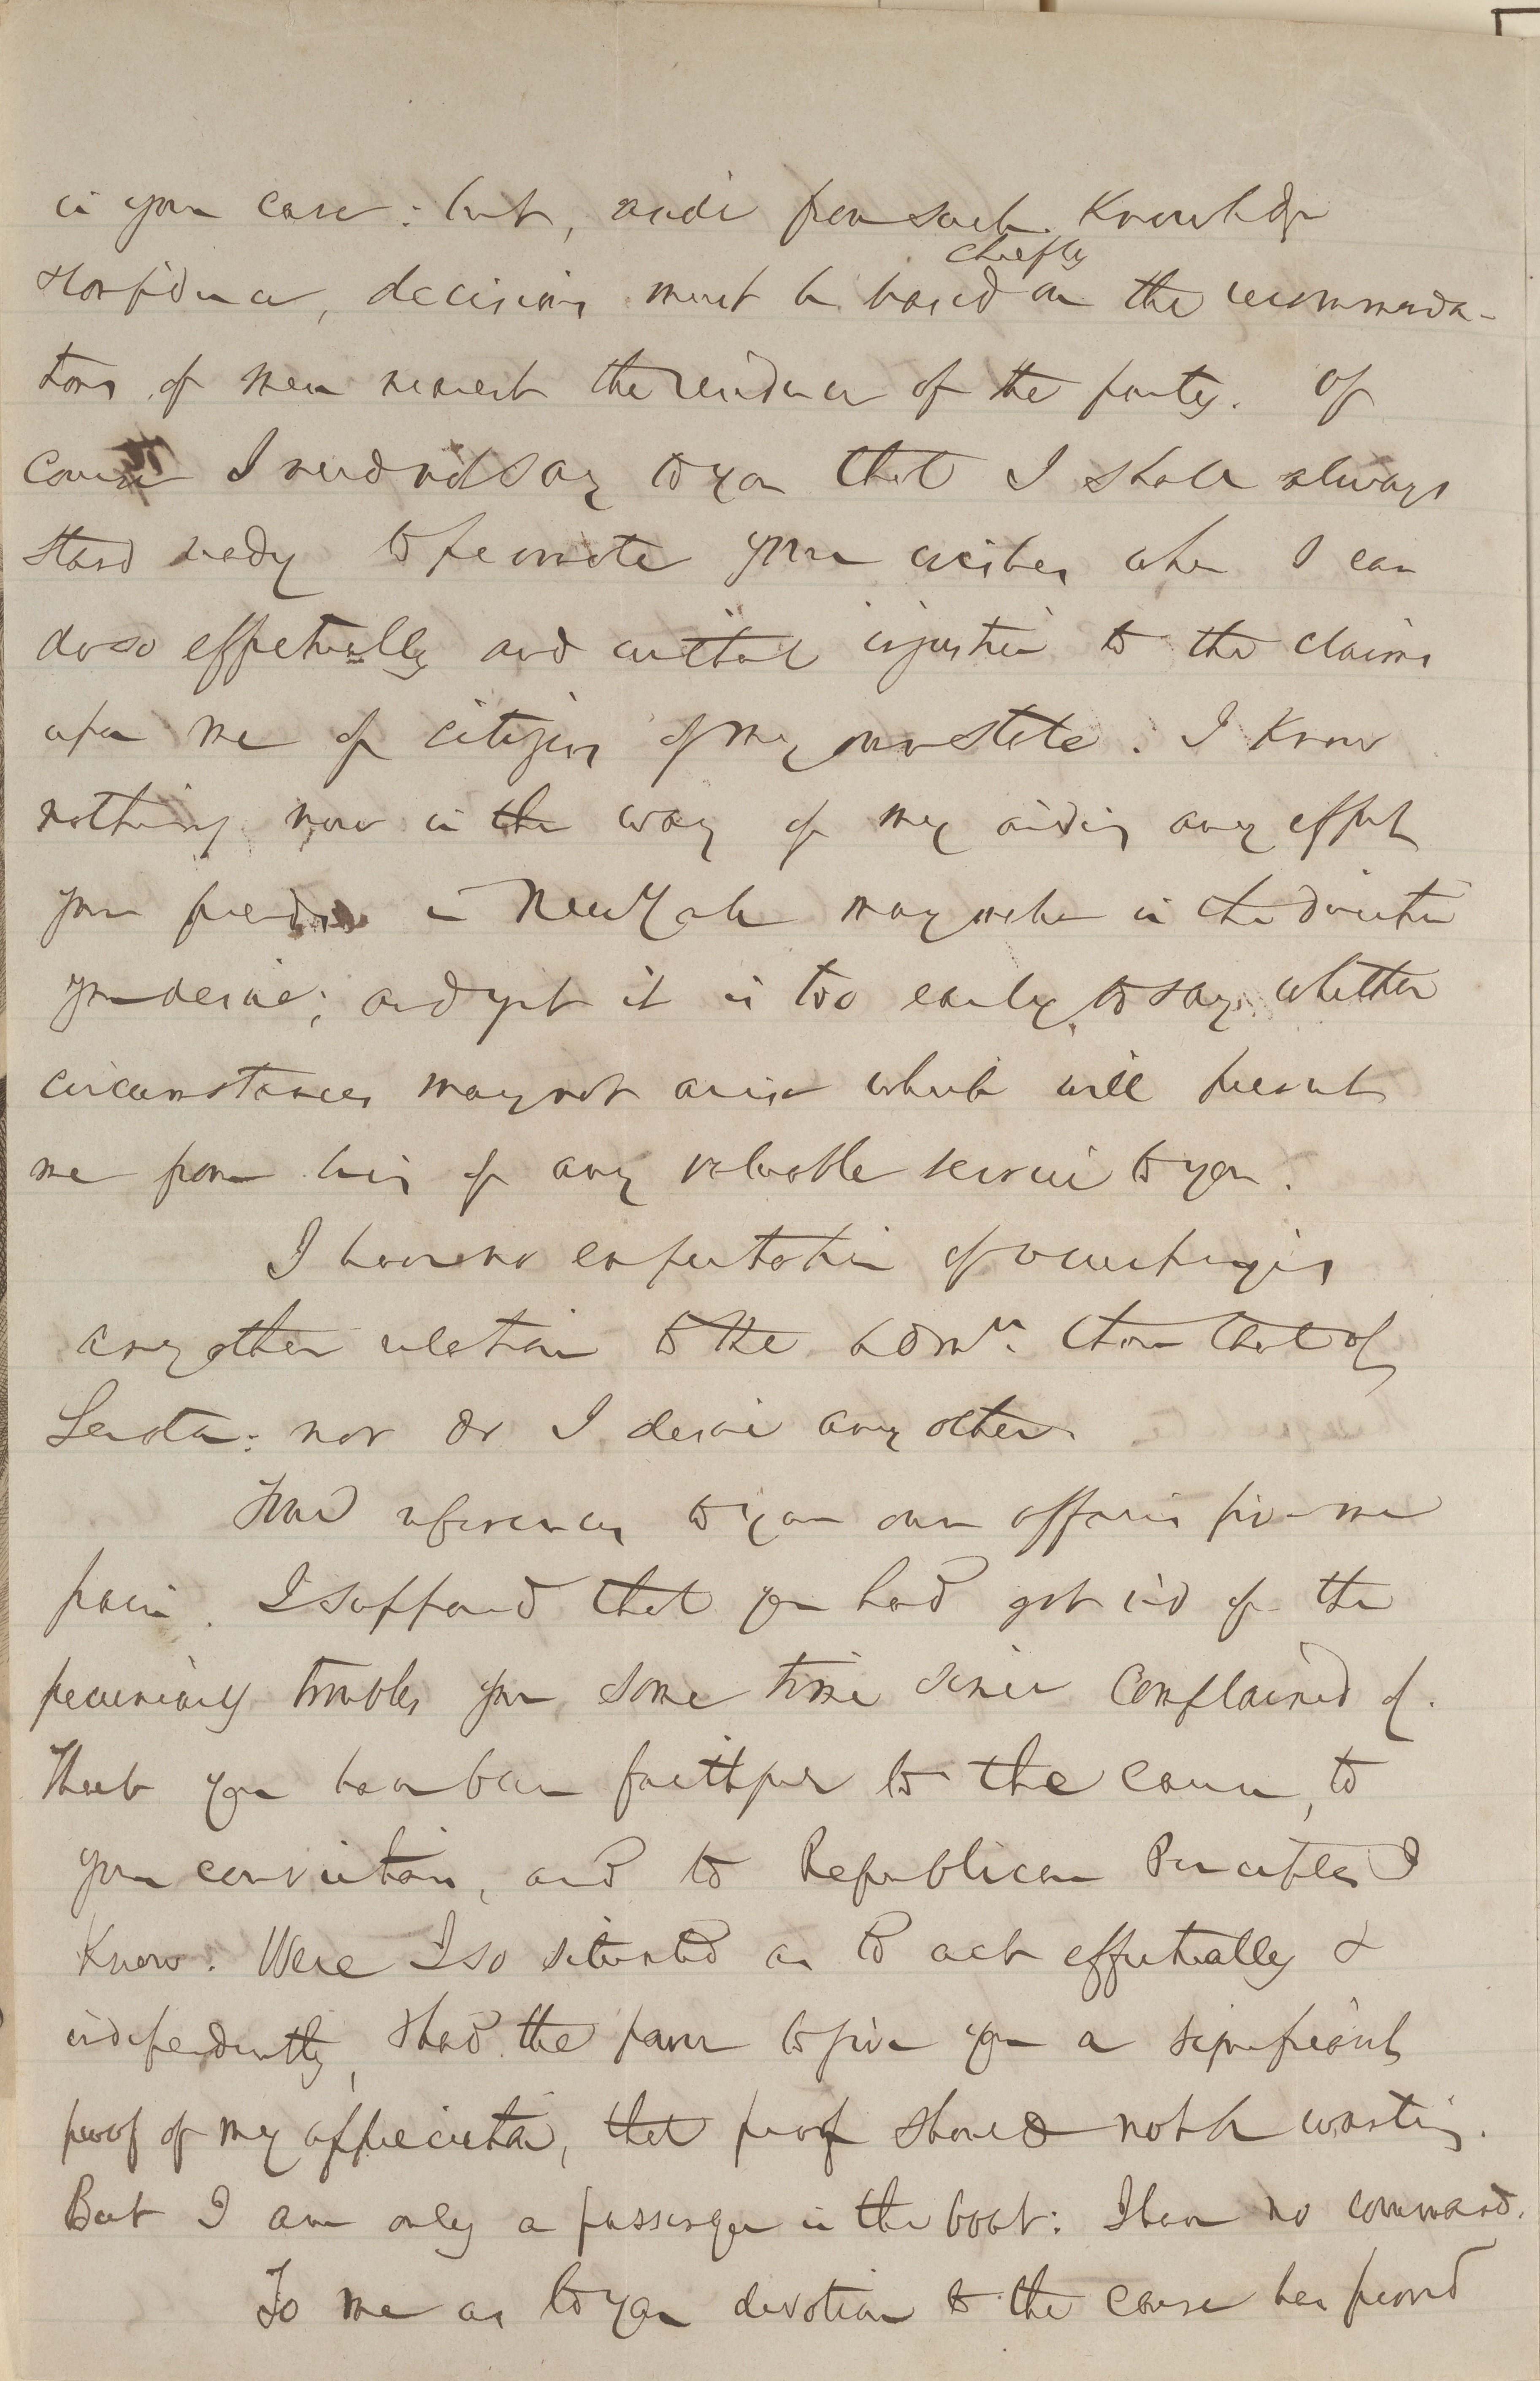 in your case: but, aside from such knowledge
chiefly
& confidence, decisions must be based on the recommenda-
tions of men nearest the residence of the party. Of
course I need not say to you that I shall always
stand ready to promote your wishes when I can
do so effectually and without injustice to the claims
upon me of citizens of my own state. I know
nothing now in the way of my aiding any effort
your friends in New York may make in the direction
you desire; and yet it is too early to say whether
circumstances may not arise which will prevent
me from being of any valuable service to you.
I have no expectation of occupying
any other relation to the admn. than that of
Senator: nor do I desire any other.
Your references to your own affairs give me
pain. I supposed that you had got rid of the
pecuniary troubles you some time since complained of.
That you have been faithful to the cause, to
your convictions, and to Republican Principles I
know. Were I so situated as to act effectually &
independently, & had the power to give you a significant
proof of my appreciation, that proof should not be wanting.
But I am only a passenger in the boat: I have no command.
To me as to you devotion to the cause has proved